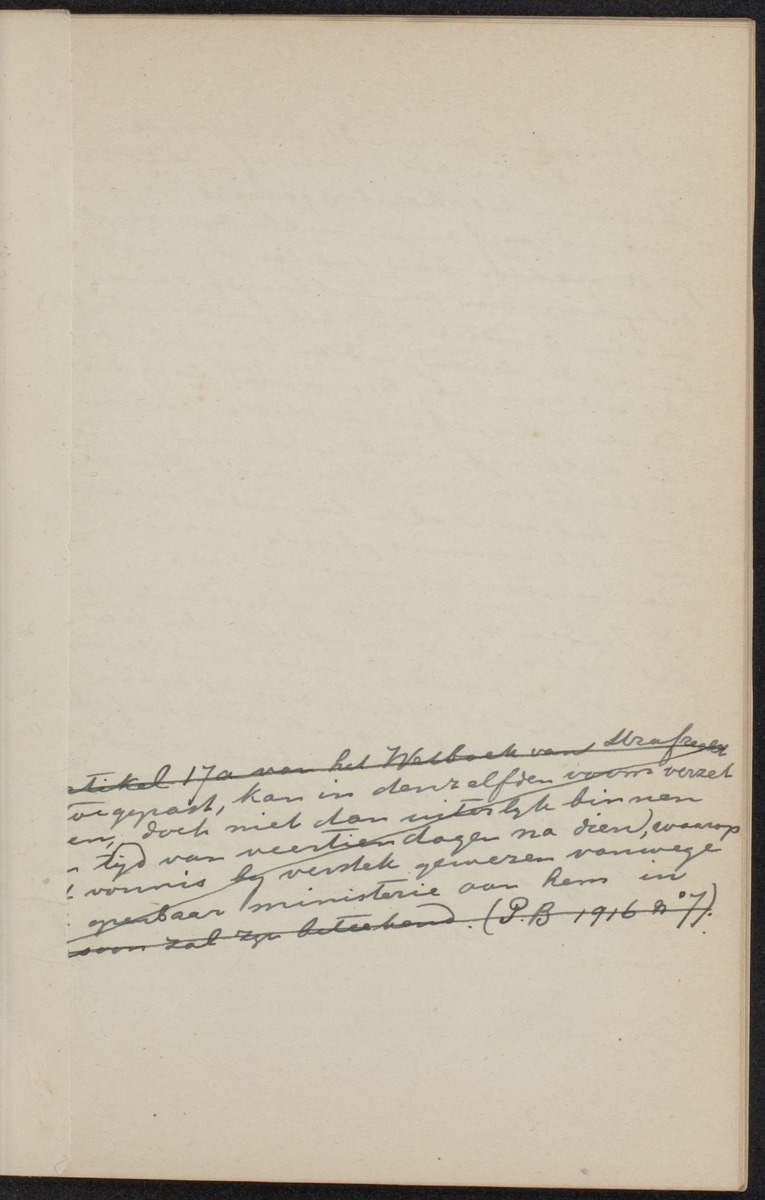 rtikel 17a van het Wetboek van Strafrecht
toegepast, kan in denzelfden vorm verzet
en, doch niet dan uiterlyk binnen
tijd van veertien dagen na dien), waarop
t vonnis by verstek gewezen vanwege
openbaar ministerie aan hem in
soon zal zyn beteekend. (P.B 1916 no 7).